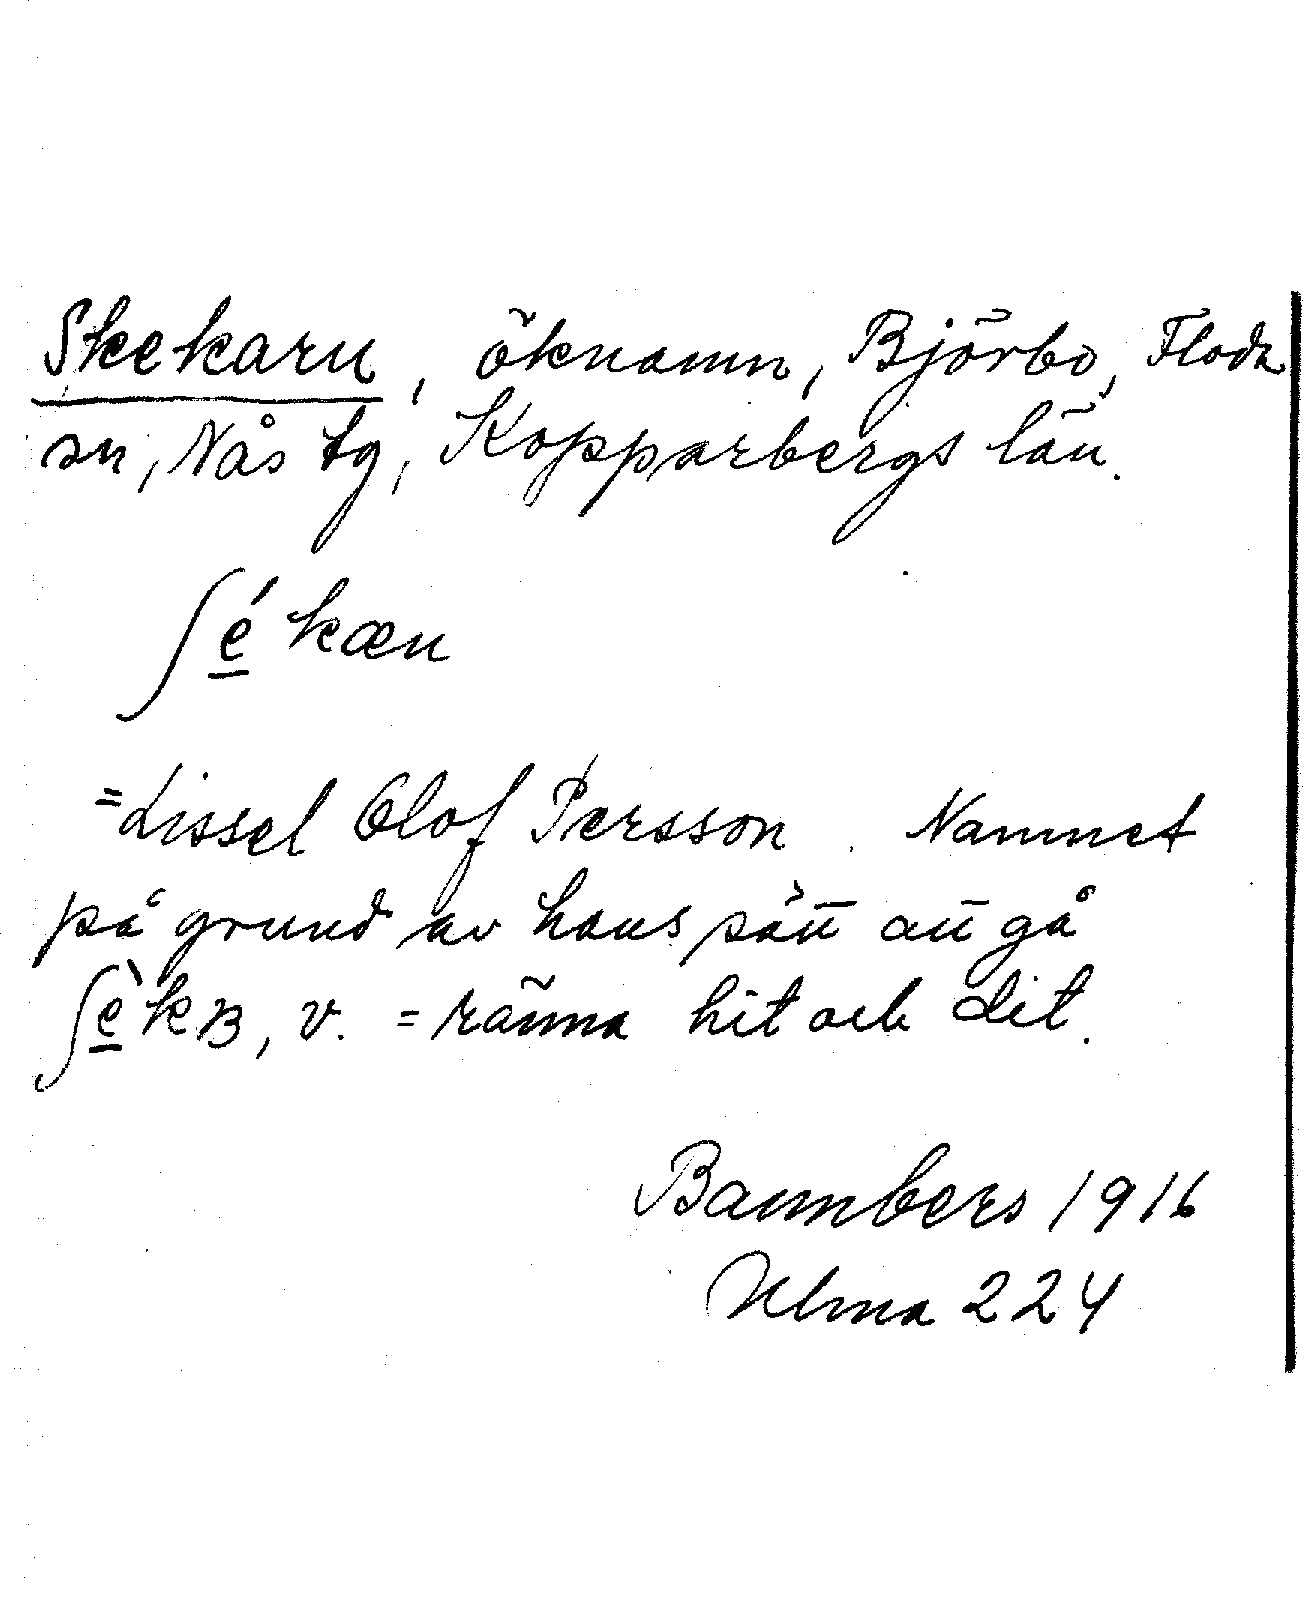 Skekarn, öknamn, Björbo, Floda
sn, Nås tg, Kopparbergs län.
ʃé̲kæn
=Lissel Olof Persson. Namnet
på grund av hans sätt att gå
ʃè̲kɞ, v. = ränna hit och dit.
Bannbers 1916
Ulma 224